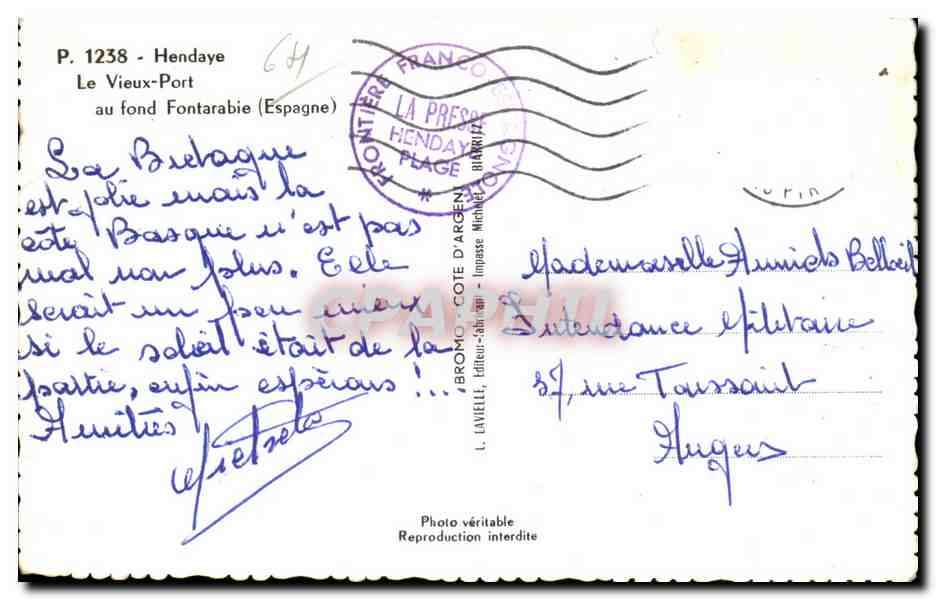 P. 1238 - Hendaye
Le Vieux-Port
au fond Fontarabie (Espagne)
La Bretagne
est jolie mais la
côte Basque n'est pas
mal non plus. Elle
serait un peu mieux
si le soleil était de la
partie, enfin espérons !...
Amitiés
FRONTIÈRE FRANCO ESPAGNOLE
LA PRESSE
HENDAYE
PLAGE
*
BROMO - COTE D'ARGENT
L. LAVIELLE, Editeur-fabricant - Impasse Michelet BIARRITZ
Mademoiselle Annick Belloeil
Intendance Militaire
37, rue Toussaint
Angers
CPAPHIL
Photo véritable
Reproduction interdite